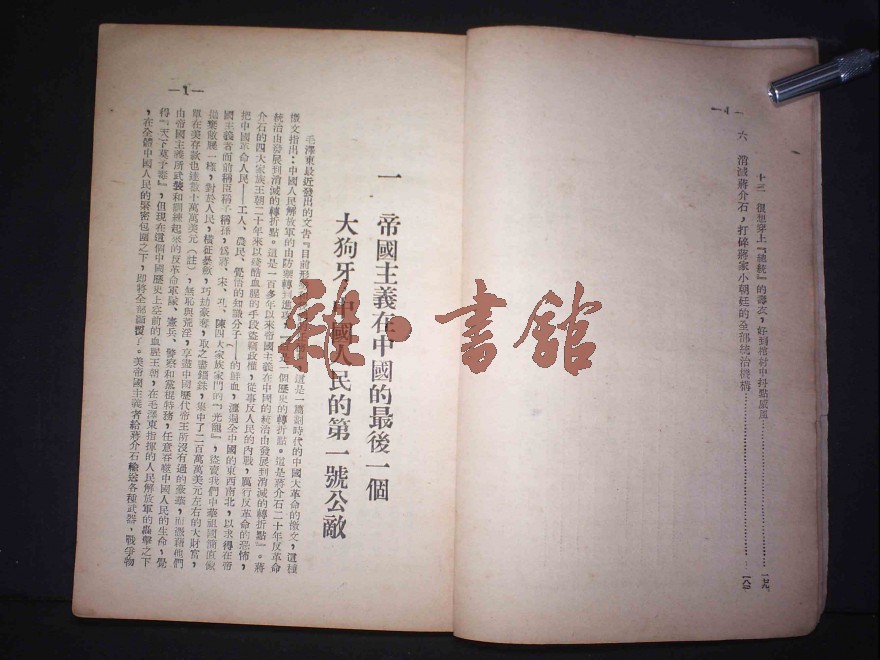 —4—
十三 很想穿上『總統』的壽衣，好到棺材中抖點威風……一七九
六 消滅蔣介石，打碎蔣家小朝廷的全部統治機構……一八二
—1—
一 帝國主義在中國的最後一個
大狗牙 中國人民的第一號公敵
毛澤東最近發出的文告『目前形 這是一篇劃時代的中國大革命的檄文，這種
檄文指出：中國人民解放軍的由防禦轉到進攻， 是一個歷史的轉折點。這是蔣介石二十年反革命
統治由發展到消滅的轉折點。這是一百多年以來帝國主義在中國的統治由發展到消滅的轉折點』。蔣
介石的四大家族王朝二十年來以殘酷血腥的手段盜竊政權，從事反人民的內戰，厲行反革命的恐怖，
把中國革命人民——工人、農民、覺悟的知識分子——的鮮血，灑遍全中國的東西南北，以求得在帝
國主義者面前稱臣稱子稱孫，為蔣、宋、孔、陳四大家族家門的『光龍』，盜賣我們中華祖國簡直像
拋棄敝屣一樣，對於人民，橫征暴斂，巧劫豪奪，取之盡錙銖，集中了二百萬萬美元左右的大財富，
單在美存款也達數十萬萬美元（註），無恥與荒淫，享盡中國歷代帝王所沒有過的豪華，而憑藉他們
由帝國主義所武裝和訓練起來的反革命軍隊、憲兵、警察和黨棍特務，任意吞噬中國人民的生命，覺
得『天下莫予毒』，但現在這個中國歷史上空前的血腥王朝，在毛澤東指揮的人民解放軍的轟擊之下
，在全體中國人民的緊密包圍之下，即將全部顛覆了。美帝國主義者給蔣介石輸送各種武器，戰爭物
雜·書館